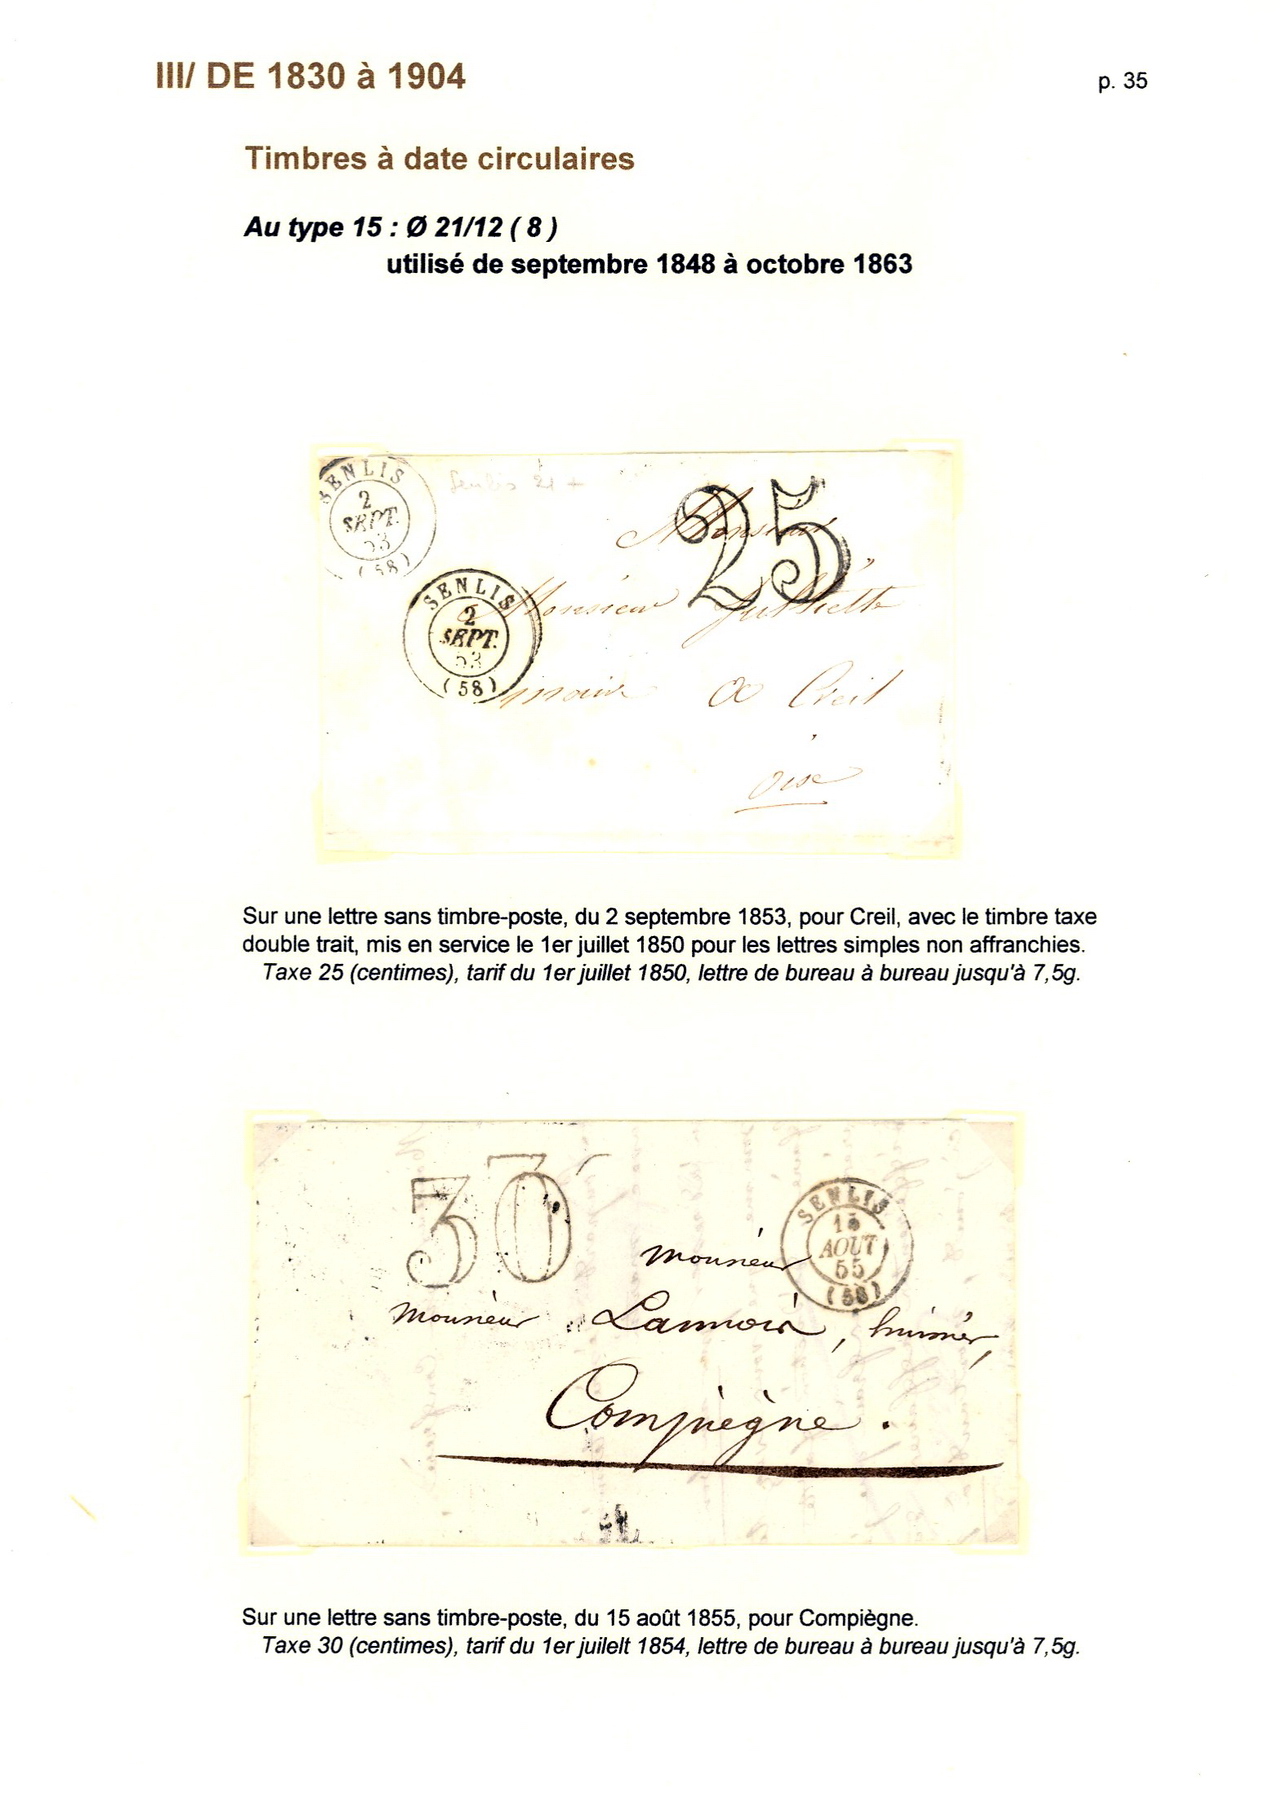 III/ DE 1830 à 1904
p. 35
Timbres à date circulaires
Au type 15 : Ø 21/12 ( 8 )
utilisé de septembre 1848 à octobre 1863
SENLIS
2
SEPT.
53
(58)
Senlis 21 +
25
Monsieur
SENLIS
2
SEPT.
53
(58)
Monsieur
maire a Creil
oise
Sur une lettre sans timbre-poste, du 2 septembre 1853, pour Creil, avec le timbre taxe
double trait, mis en service le 1er juillet 1850 pour les lettres simples non affranchies.
Taxe 25 (centimes), tarif du 1er juillet 1850, lettre de bureau à bureau jusqu'à 7,5g.
30
SENLIS
15
AOUT
55
(58)
Monsieur
Monsieur Lannoix, huissier,
Compiègne.
Sur une lettre sans timbre-poste, du 15 août 1855, pour Compiègne.
Taxe 30 (centimes), tarif du 1er juilelt 1854, lettre de bureau à bureau jusqu'à 7,5g.